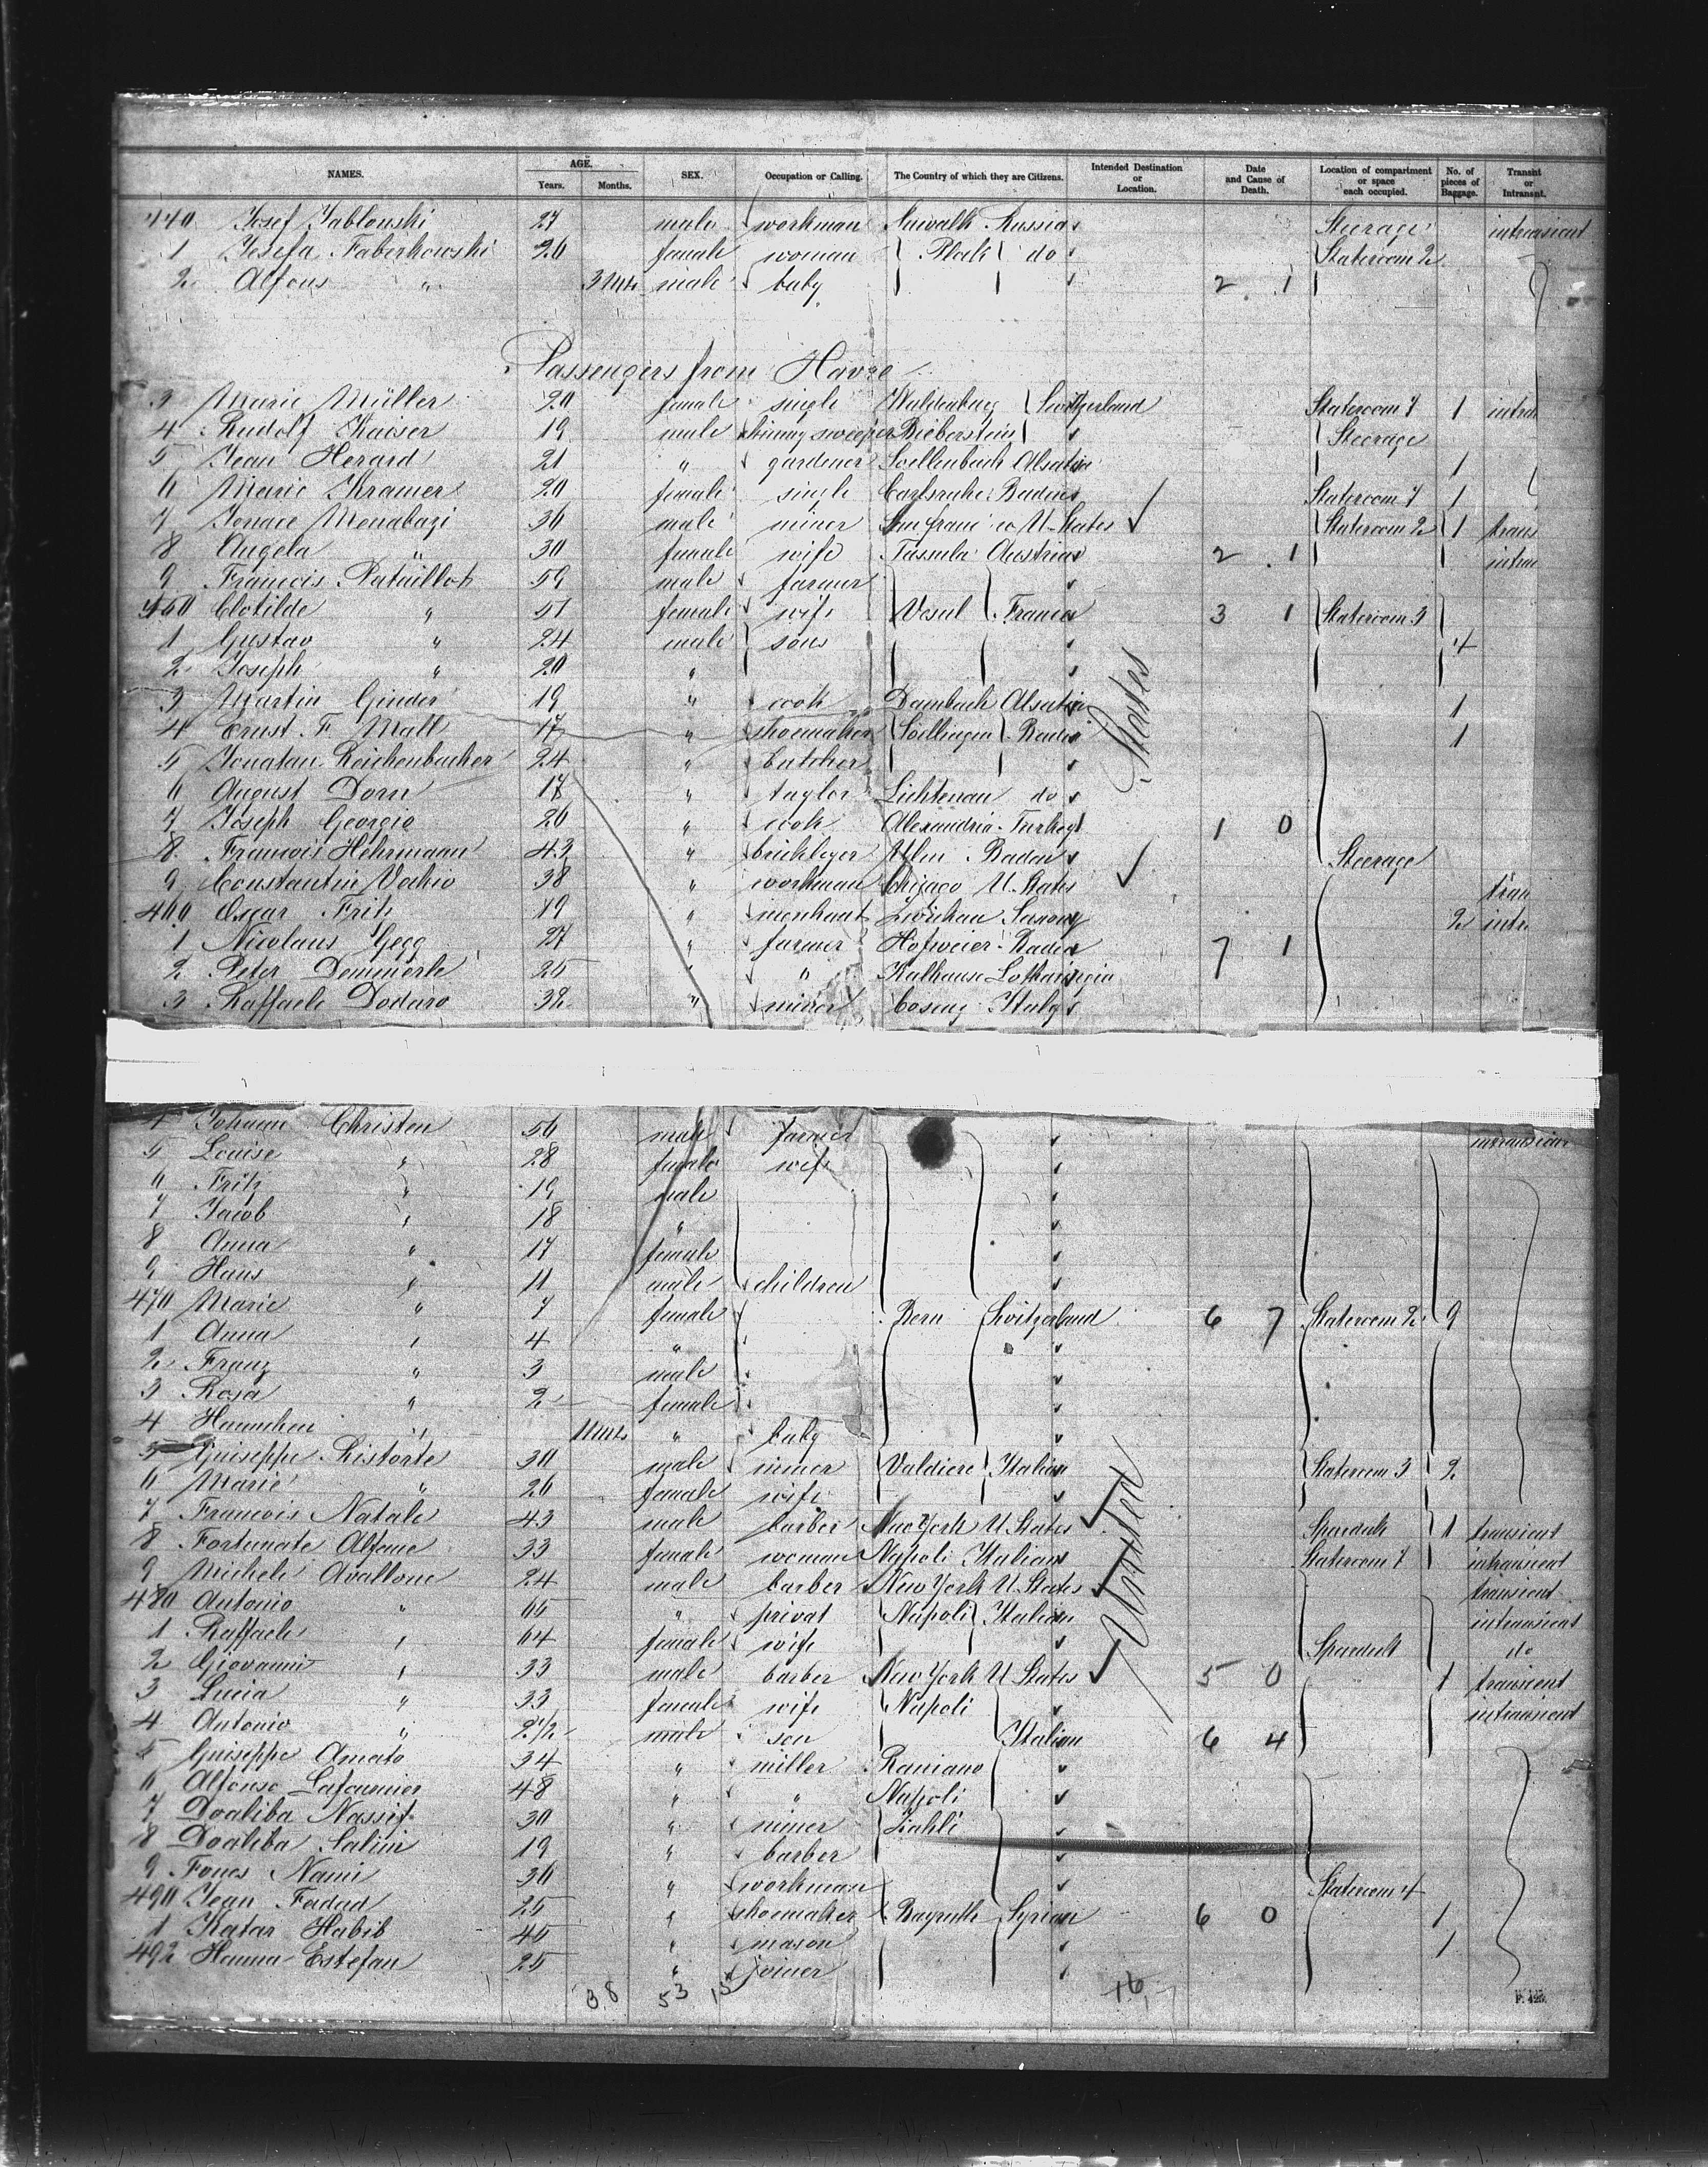 NAMES. AGE. Years. Months. SEX. Occupation or Calling. The Country of which they are Citizens. Intended Destination or Location. Date and Cause of Death. Location of compartment or space each occupied. No. of pieces of Baggage. Transit or Intransit.
440 Josef Jablonski 27 male workman Suwalk Russia Steerage intransient
1 Josefa Faberkowski 26 female woman Plock do Stateroom 2
2 Alfons " 3 Mts. male baby 2 1
Passengers from Havre
3 Marie Müller 20 female single Waldenburg Switzerland Stateroom 7 1 intra
4 Rudolf Kaiser 19 male chimney sweeper Bieberstein Steerage
5 Jean Herard 21 " gardener Soellenbach Alsatia 1
6 Marie Kramer 20 female single Carlsruhe Baden Stateroom 7 1
7 Ionace Menabazi 36 male miner San francisco U. States Stateroom 2 1 trans
8 Angela " 30 female wife Tassulo Austria 2 1 intra
9 Francois Pataillot 59 male farmer
450 Clotilde " 51 female wife Vesul France 3 1 Stateroom 3
1 Gustav " 24 male sons 4
2 Joseph " 20 "
3 Martin Ginder 19 " cook Dambach Alsatia 1
4 Ernst F. Mall 17 " shoemaker Söllingen Baden 1
5 Jonatan Reichenbacher 24 " butcher
6 August Dorn 17 " taylor Lichtenau do
7 Joseph Georgio 26 " cook Alexandria Turkey 1 0
8 Francois Hehrmann 43 " bricklayer Ulm Baden Steerage
9 Constantin Vochio 38 " workman Chicago U. States tran
460 Oscar Fritz 19 " merchant Zwickau Saxony 2 intra
1 Nicolaus Gegg 27 " farmer Hofweier Baden 7 1
2 Peter Demmerle 25 " " Kalhause Lotharingia
3 Raffaele Dodaro 32 " miner Coseng Italy
States
4 Johann Christen 56 male farmer intransient
5 Louise " 28 female wife
6 Fritz " 19 male
7 Jacob " 18 "
8 Anna " 17 female
9 Hans " 11 male children
470 Marie " 7 female Bern Switzerland 6 7 Stateroom 2 9
1 Anna " 4 "
2 Franz " 3 male
3 Rosa " 2 female
4 Hannchen " 11 Mts. " baby
5 Guiseppe Ristorte 30 male miner Valdiere Italian Stateroom 3 2
6 Marie " 26 female wife
7 Francois Natale 43 male barber New York U. States Spardeck 1 transient
8 Fortunate Alfane 33 female woman Napoli Italian Stateroom 7 intransient
9 Michele Avallone 24 male barber New York U. States transient
480 Antonio " 65 " privat Napoli Italian intransient
1 Raffaele " 64 female wife Spardeck do
2 Giovanni " 33 male barber New York U States 5 0 1 transient
3 Lucia " 33 female wife Napoli intransient
4 Antonio " 2 1/2 male son Italian 6 4
5 Guiseppe Amato 34 " miller Raniano
6 Alfonso Lafournier 48 " " Napoli
7 Doaliba Nassif 30 " miner Zahlé
8 Doaliba Salim 19 " barber
9 Foues Nami 36 " workman Stateroom 4
490 Jean Fadad 25 " shoemaker Bayruth Syrian 6 0 1
1 Katar Habib 45 " mason 1
492 Hanna Estefan 25 " joiner
United
38 53 15 16